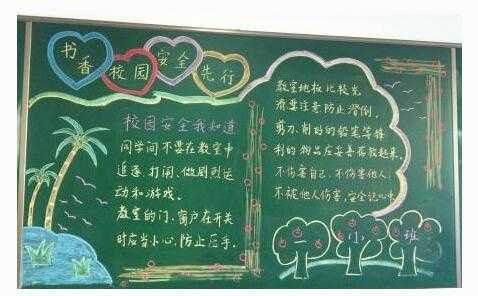 书香
校园
安全
先行
校园安全我知道
同学间不要在教室中
追逐、打闹、做剧烈运
动和游戏。
教室的门、窗户在开关
时应当小心,防止压手。
教室地板比较光
滑要注意防止滑倒,
剪刀、削好的铅笔等锋
利的物品应妥善存放起来,
不伤害自己,不伤害他人,
不被他人伤害,安全记心中
一小班